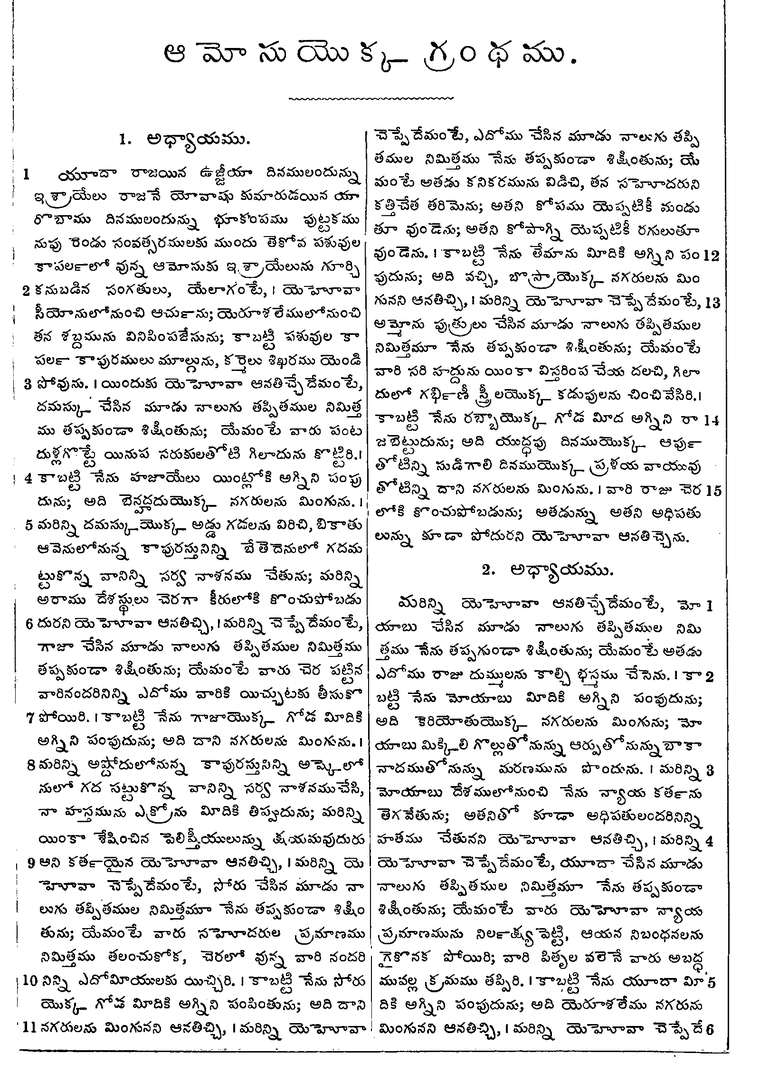 ఆమోసుయొక్క గ్రంథము.
1. అధ్యాయము.
1 యూదా రాజయిన ఉజ్జీయా దినములందున్ను
ఇశ్రాయేలు రాజనే యోవాషు కుమారుడయిన యా
రొబాము దినములందున్ను భూకంపము పుట్టకము
నుపు రెండు సంవత్సరములకు ముందు తెకోవ పశువుల
కాపర్లలో వున్న ఆమోసుకు ఇశ్రాయేలును గూర్చి
2 కనుబడిన సంగతులు, యేలాగంటే, । యెహోవా
సీయోనులోనుంచి ఆర్చును; యెరూశలేములోనుంచి
తన శబ్దమును వినిపింపజేసును; కాబట్టి పశువుల కా
పర్ల కాపురములు మూల్గును, కర్మెలు శిఖరము యెండి
3 పోవును. । యిందుకు యెహోవా ఆనతిచ్చేదేమంటే,
దమస్కు చేసిన మూడు నాలుగు తప్పితముల నిమిత్త
ము తప్పకుండా శిక్షింతును; యేమంటే వారు పంట
దుళ్లగొట్టే యినుప సరుకులతోటి గిలాదును కొట్టిరి.।
4 కాబట్టి నేను హజాయేలు యింట్లోకి అగ్నిని పంపు
దును; అది బెన్హదదుయొక్క నగరులను మింగును. ।
5 మరిన్ని దమస్కుయొక్క అడ్డు గడలను విరిచి, బికాతు
ఆవెనులోనున్న కాపురస్తునిన్ని బేతెదెనులో గదమ
ట్టుకొన్న వానిన్ని సర్వ నాశనము చేతును; మరిన్ని
అరాము దేశస్థులు చెరగా కీరులోకి కొంచుపోబడు
6 దురని యెహోవా ఆనతిచ్చి, । మరిన్ని చెప్పేదేమంటే,
గాజా చేసిన మూడు నాలుగు తప్పితముల నిమిత్తము
తప్పకుండా శిక్షింతును; యేమంటే వారు చెర పట్టిన
వారినందరినిన్ని ఎదోము వారికి యిచ్చుటకు తీసుకొ
7 పోయిరి. । కాబట్టి నేను గాజాయొక్క గోడ మీదికి
అగ్నిని పంపుదును; అది దాని నగరులను మింగును. ।
8 మరిన్ని అష్దోదులోనున్న కాపురస్తునిన్ని అష్కెలో
నులో గద పట్టుకొన్న వానిన్ని సర్వ నాశనముచేసి,
నా హస్తమును ఎక్రోను మీదికి తిప్పుదును; మరిన్ని
యింకా శేషించిన పెలిష్తీయులున్ను క్షయమవుదురు
9 అని కర్తయైన యెహోవా ఆనతిచ్చి, । మరిన్ని యె
హోవా చెప్పేదేమంటే, సోరు చేసిన మూడు నా
లుగు తప్పితముల నిమిత్తమూ నేను తప్పకుండా శిక్షిం
తును; యేమంటే వారు సహోదరుల ప్రమాణము
నిమిత్తము తలంచుకోక, చెరలో వున్న వారి నందరి
10 నిన్ని ఎదోమీయులకు యిచ్చిరి. । కాబట్టి నేను సోరు
యొక్క గోడ మీదికి అగ్నిని పంపింతును; అది దాని
11 నగరులను మింగునని ఆనతిచ్చి, । మరిన్ని యెహోవా
చెప్పేదేమంటే, ఎదోము చేసిన మూడు నాలుగు తప్పి
తముల నిమిత్తము నేను తప్పకుండా శిక్షింతును; యే
మంటే అతడు కనికరమును విడిచి, తన సహోదరుని
కత్తిచేత తరిమెను; అతని కోపము యెప్పటికీ మండు
తూ వుండెను; అతని కోపాగ్ని యెప్పటికీ రగులుతూ
వుండెను. । కాబట్టి నేను తేమాను మీదికి అగ్నిని పం 12
పుదును; అది వచ్చి, బొస్రాయొక్క నగరులను మిం
గునని ఆనతిచ్చి, । మరిన్ని యెహోవా చెప్పేదేమంటే, 13
అమ్మోను పుత్రులు చేసిన మూడు నాలుగు తప్పితముల
నిమిత్తమూ నేను తప్పకుండా శిక్షింతును; యేమంటే
వారి సరి హద్దును యింకా విస్తరింప చేయ దలచి, గిలా
దులో గర్భిణీ స్త్రీలయొక్క కడుపులను చించివేసిరి.।
కాబట్టి నేను రబ్బాయొక్క గోడ మీద అగ్నిని రా 14
జబెట్టుదును; అది యుద్ధపు దినముయొక్క ఆర్పు
తోటిన్ని సుడిగాలి దినముయొక్క ప్రళయ వాయువు
తోటిన్ని దాని నగరులను మింగును. । వారి రాజు చెర 15
లోకి కొంచుపోబడును; అతడున్ను అతని అధిపతు
లున్ను కూడా పోదురని యెహోవా ఆనతిచ్చెను.
2. అధ్యాయము.
మరిన్ని యెహోవా ఆనతిచ్చేదేమంటే, మో 1
యాబు చేసిన మూడు నాలుగు తప్పితముల నిమి
త్తము నేను తప్పగుండా శిక్షింతును; యేమంటే అతడు
ఎదోము రాజు దుమ్ములను కాల్చి భస్తము చేసెను. । కా 2
బట్టి నేను మోయాబు మీదికి అగ్నిని పంపుదును;
అది కెరియోతుయొక్క నగరులను మింగును; మో
యాబు మిక్కిలి గొల్లుతోనున్ను ఆర్పుతోనున్ను బాకా
నాదముతోనున్ను మరణమును పొందును. । మరిన్ని 3
మోయాబు దేశములోనుంచి నేను న్యాయ కర్తను
తెగవేతును; అతనితో కూడా అధిపతులందరినిన్ని
హతము చేతునని యెహోవా ఆనతిచ్చి, । మరిన్ని 4
యెహోవా చెప్పేదేమంటే, యూదా చేసిన మూడు
నాలుగు తప్పితముల నిమిత్తమూ నేను తప్పకుండా
శిక్షింతును; యేమంటే వారు యెహోవా న్యాయ
ప్రమాణమును నిర్లక్ష్యపెట్టి, ఆయన నిబంధనలను
గైకొనక పోయిరి; వారి పితృల వలెనే వారు అబద్ధ
మువల్ల క్రమము తప్పిరి. । కాబట్టి నేను యూదా మీ 5
దికి అగ్నిని పంపుదును; అది యెరూశలేము నగరును
మింగునని ఆనతిచ్చి, । మరిన్ని యెహోవా చెప్పేదే 6